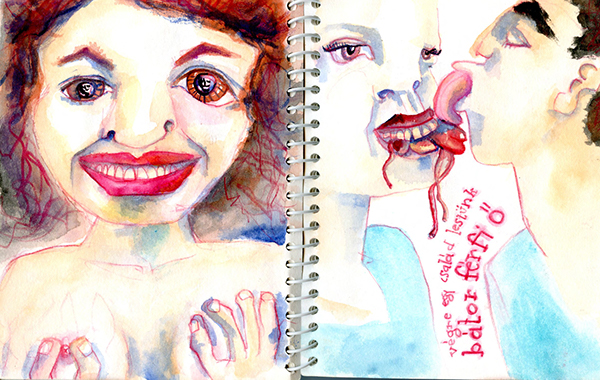 végre egy család leszünk
bátor férfi ő